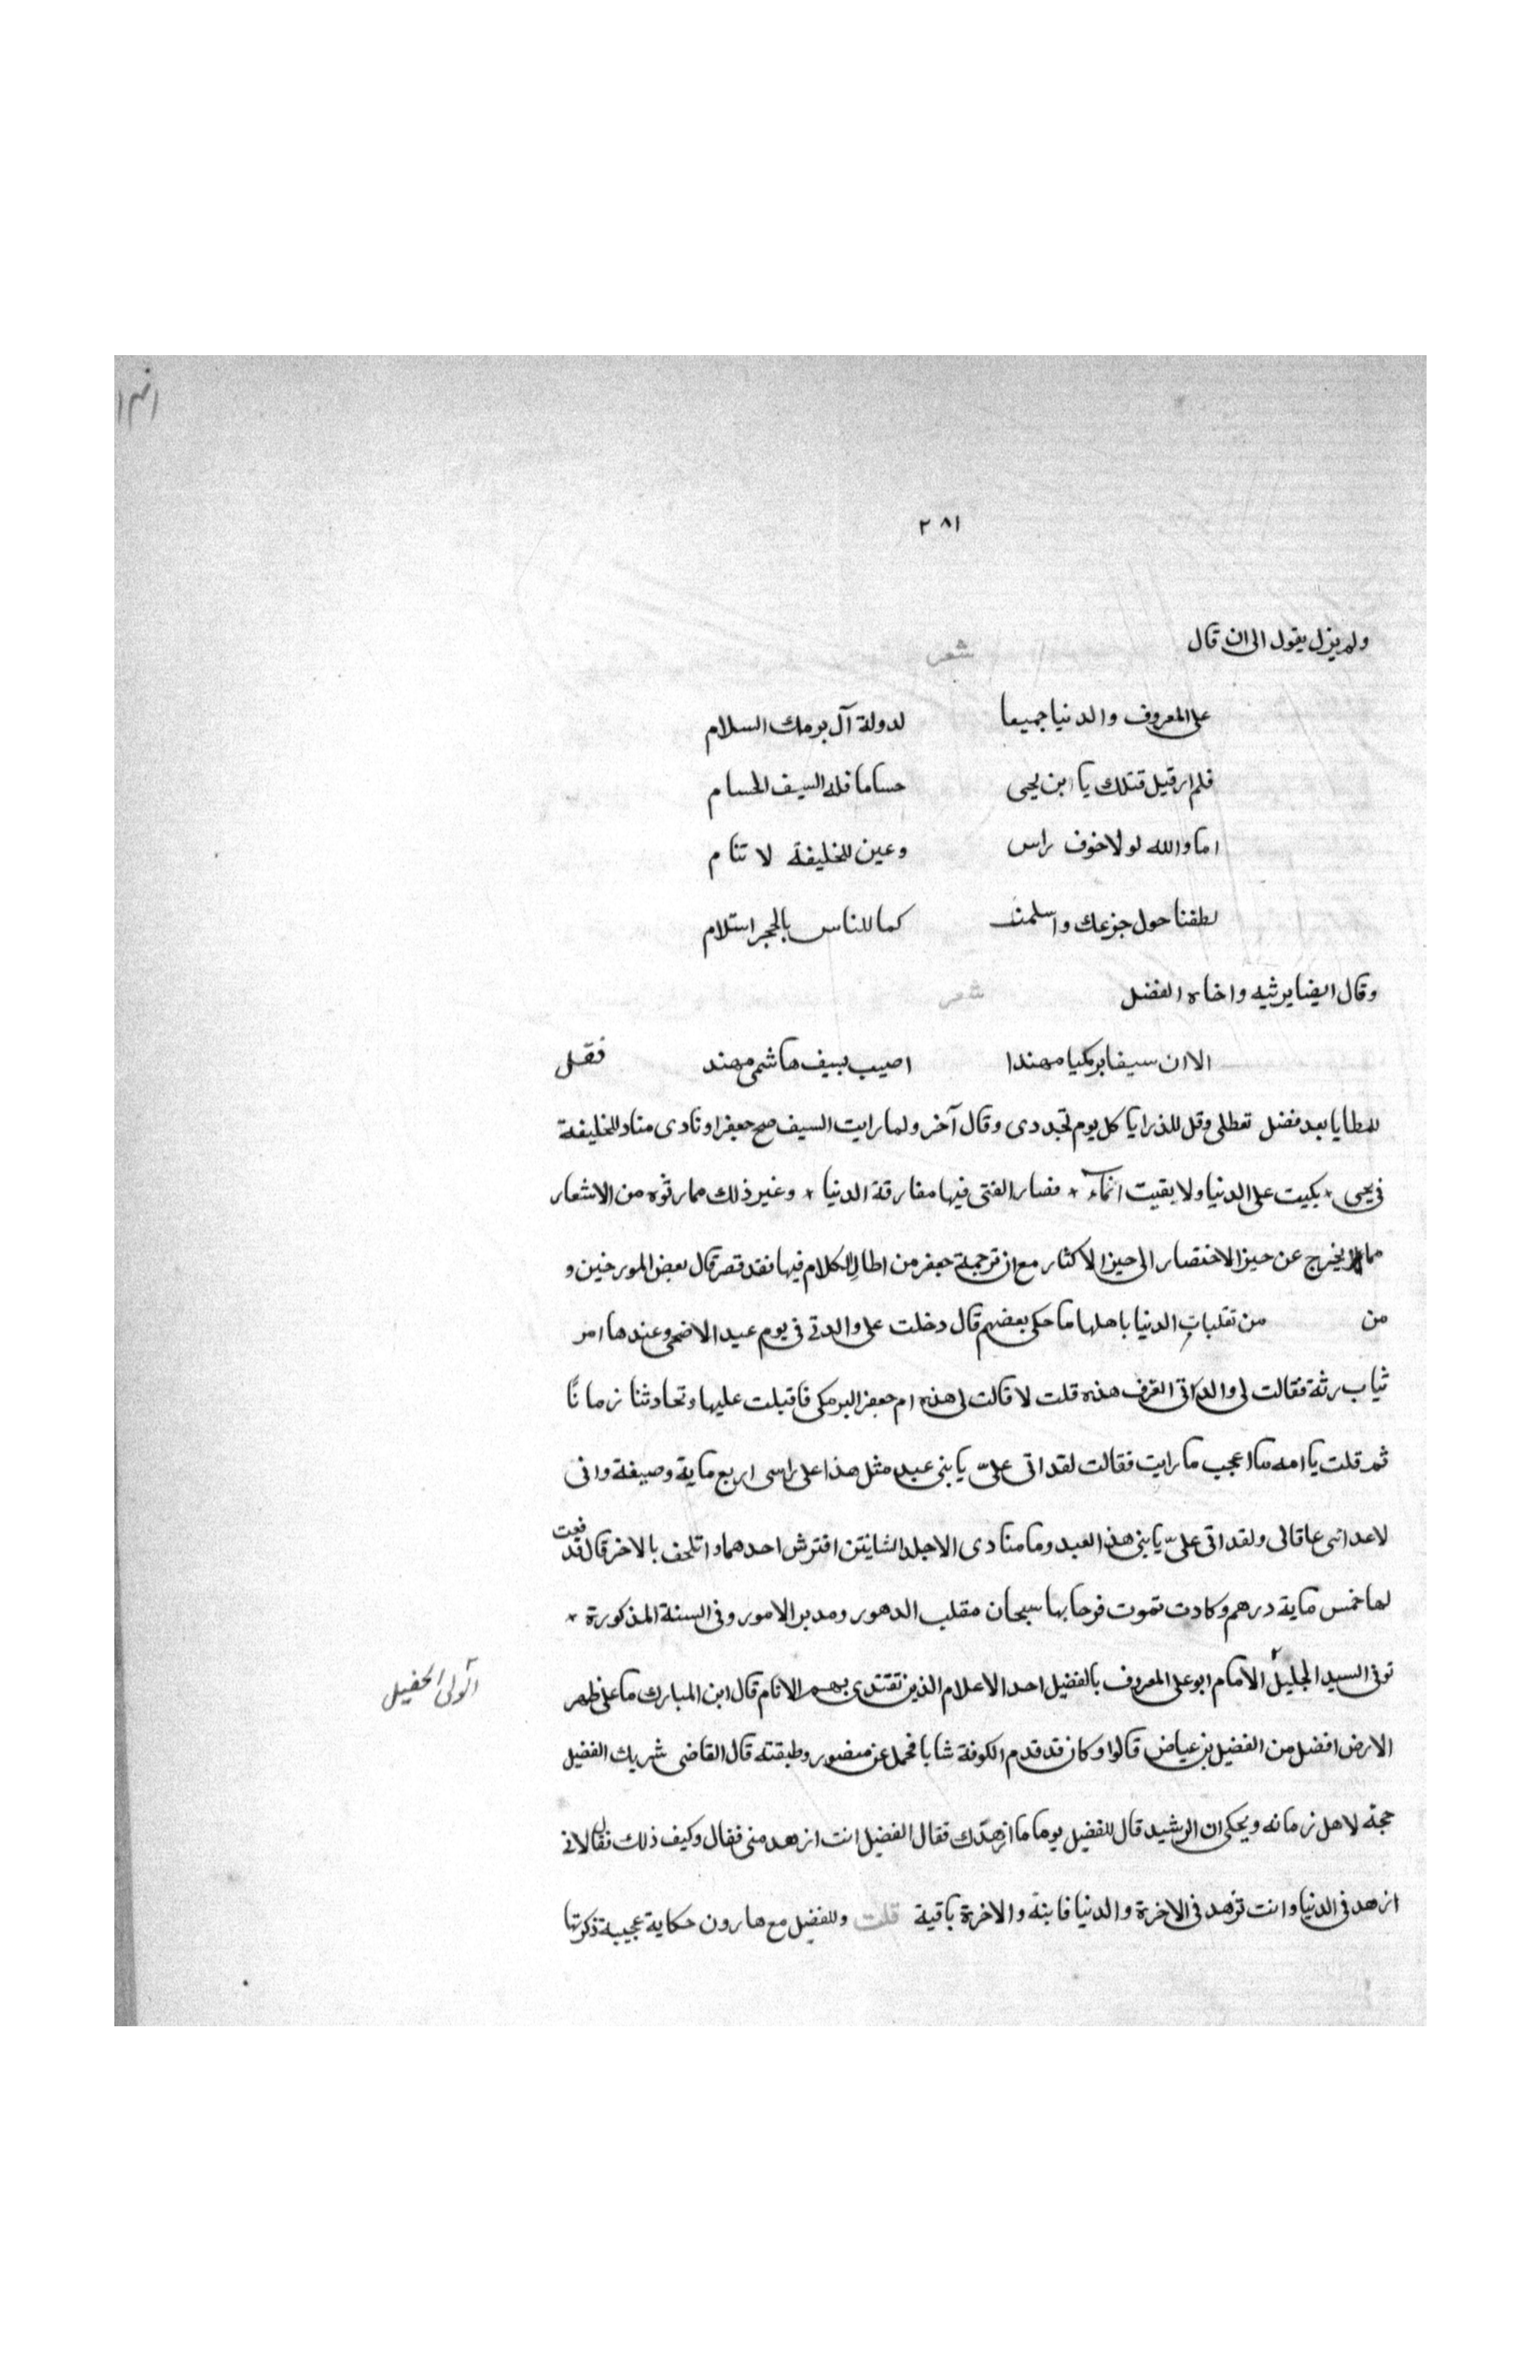 ٢٨١
ولم يزل يقول الى ان قال شعر
على المعروف والدنيا جميعا لدولة آل برمك السلام
فلم ار قبل قتلك يا ابن يحيى حساما فله السيف الحسام
اما والله لولا خوف راس وعين للخليفة لا تنام
لطفنا حول جزعك واسلمنا كما للناس بالحجر استلام
وقال ايضا يرثيه واخاه الفضل شعر
الا ان سيفا برمكيا مهندا اصيب بسيف هاشمى مهند فقل
للعطايا بعد فضل تعطلى وقل للذرايا كل يوم تجددى وقال آخر ولما رايت السيف صبح جعفرا ونادى مناد للخليفة
فى يحيى * بكيت على الدنيا ولا بقيت * فصار الفتى فيها مفارقة الدنيا * وغير ذلك مما رثوه من الاشعار
مما يخرج عن حيز الاختصار الى حيز الاكثار مع ان ترجمة جعفر من اطال الكلام فيها فقد قصر قال بعض المورخين و
من من تقلبات الدنيا باهلها ما حكى بعضهم قال دخلت على والدتى فى يوم عيد الاضحى وعندها امر
ثياب رثة فقالت لى والداتى اتعرف هذه قلت لا قالت لى هذه ام جعفر البرمكى فاقبلت عليها وتحادثنا زمانًا
ثم قلت يا امه ما اعجب ما رايت فقالت لقد اتى علىّ يا بنى عبد مثل هذا على راسى اربع ماية وصيفة وانى
لاعد ابنى عاقا لى ولقد اتى علىّ يا بنى هذ العبد وما منادى الا جلد الشايتن افترش احدهما واتلحف بالاخر قال فدفعت
لها خمس ماية درهم وكادت تموت فرحا بها سبحان مقلب الدهور ومدبر الامور وفى السنة المذكورة *
توفى السيد الجليل الامام ابو على المعروف بالفضيل احد الاعلام الذين تقتدى بهم الانام قال ابن المبارك ما على ظهر
الارض افضل من الفضيل بن عياض قالوا وكان قد قدم الكوفة شابا فحمل عن منصور وطبقته قال القاضى شريك الفضيل
حجة لاهل زمانه ويحكى ان الرشيد قال للفضيل يوما ما ازهدك فقال الفضيل انت ازهد منى فقال وكيف ذلك فقال لانى
ازهد فى الدنيا وانت تزهد فى الاخرة والدنيا فانية والاخرة باقية قلت وللفضيل مع هارون حكاية عجيبة ذكرتها